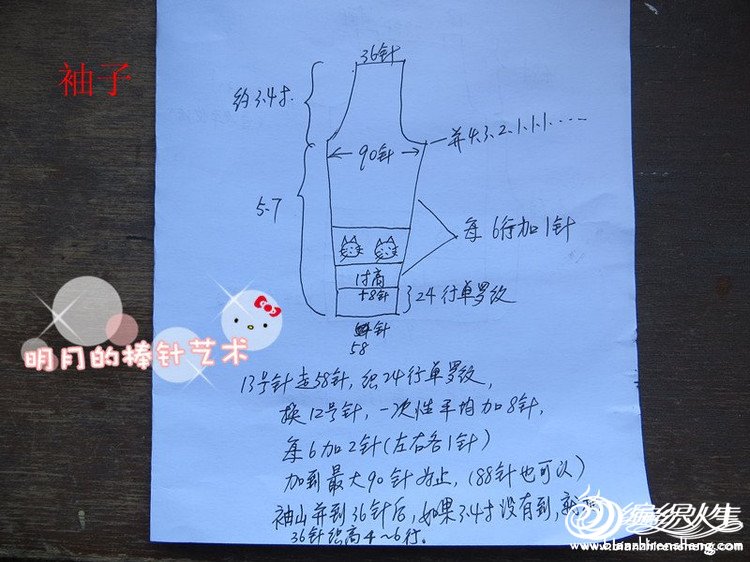 袖子
36针
约3.4寸
并4.3.2.1.1.1......
90针
5.7
每6行加1针
58针
24行单罗纹
针
58
明月的棒针艺术
13号针起58针，织24行单罗纹，
换12号针，一次性平均加8针，
每6加2针(左右各1针)
加到最大90针为止，(88针也可以)
袖山并到36针后，如果3.4寸没有到，
36针织高4~6行。
编织人生
www.bianzhirensheng.com